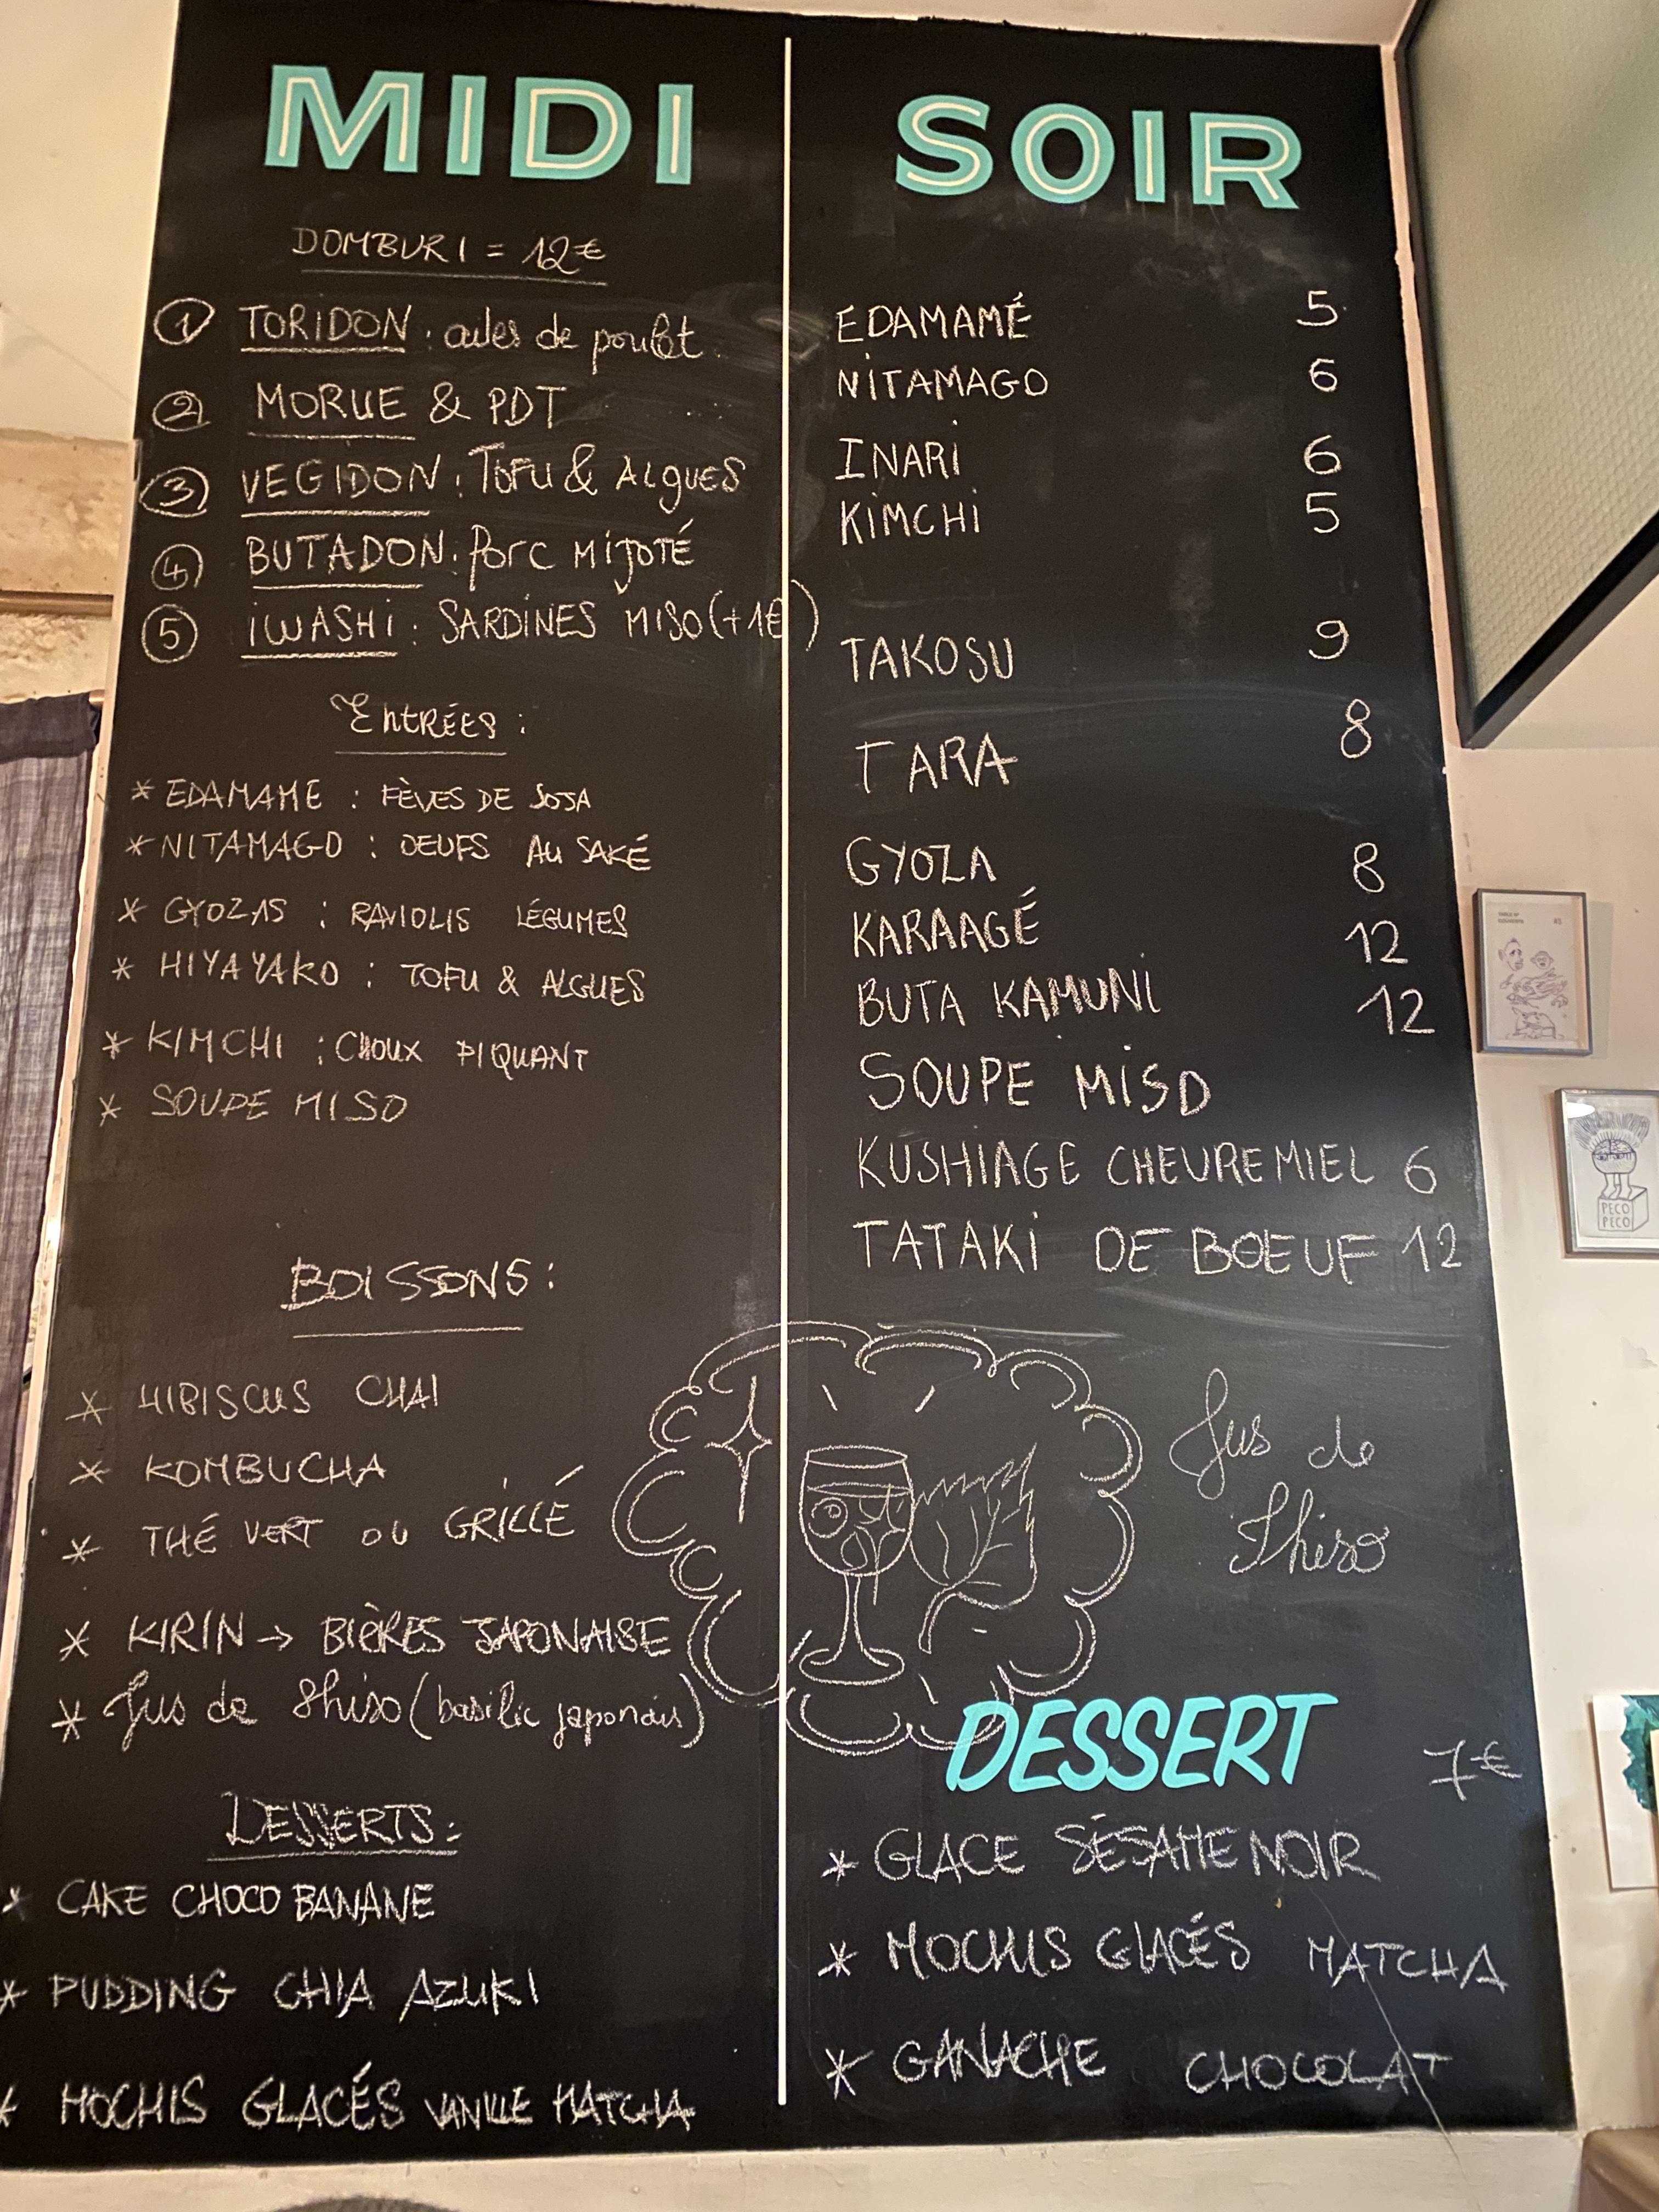 MIDI
DOMBURI = 12€
1 TORIDON : ailes de poulet
2 MORUE & PDT
3 VEGIDON : TOFU & ALGUES
4 BUTADON : PORC MIJOTÉ
5 IWASHI : SARDINES MISO (+1€)
ENTRÉES :
* EDAMAME : FÈVES DE SOJA
* NITAMAGO : OEUFS AU SAKÉ
* GYOZAS : RAVIOLIS LÉGUMES
* HIYAYAKO : TOFU & ALGUES
* KIMCHI : CHOUX PIQUANT
* SOUPE MISO
BOISSONS :
* HIBISCUS CHAI
* KOMBUCHA
* THÉ VERT OU GRILLÉ
* KIRIN → BIÈRES JAPONAISE
* Jus de Shiso (basilic japonais)
DESSERTS :
* CAKE CHOCO BANANE
* PUDDING CHIA AZUKI
* MOCHIS GLACÉS VANILLE MATCHA
SOIR
EDAMAMÉ 5
NITAMAGO 6
INARI 6
KIMCHI 5
TAKOSU 9
TARA 8
GYOZA 8
KARAAGÉ 12
BUTA KAMUNI 12
SOUPE MISO
KUSHIAGE CHEVRE MIEL 6
TATAKI DE BOEUF 12
Jus de
Shiso
DESSERT 7€
* GLACE SÉSAME NOIR
* MOCHIS GLACÉS MATCHA
* GANACHE CHOCOLAT
PECO
PECO